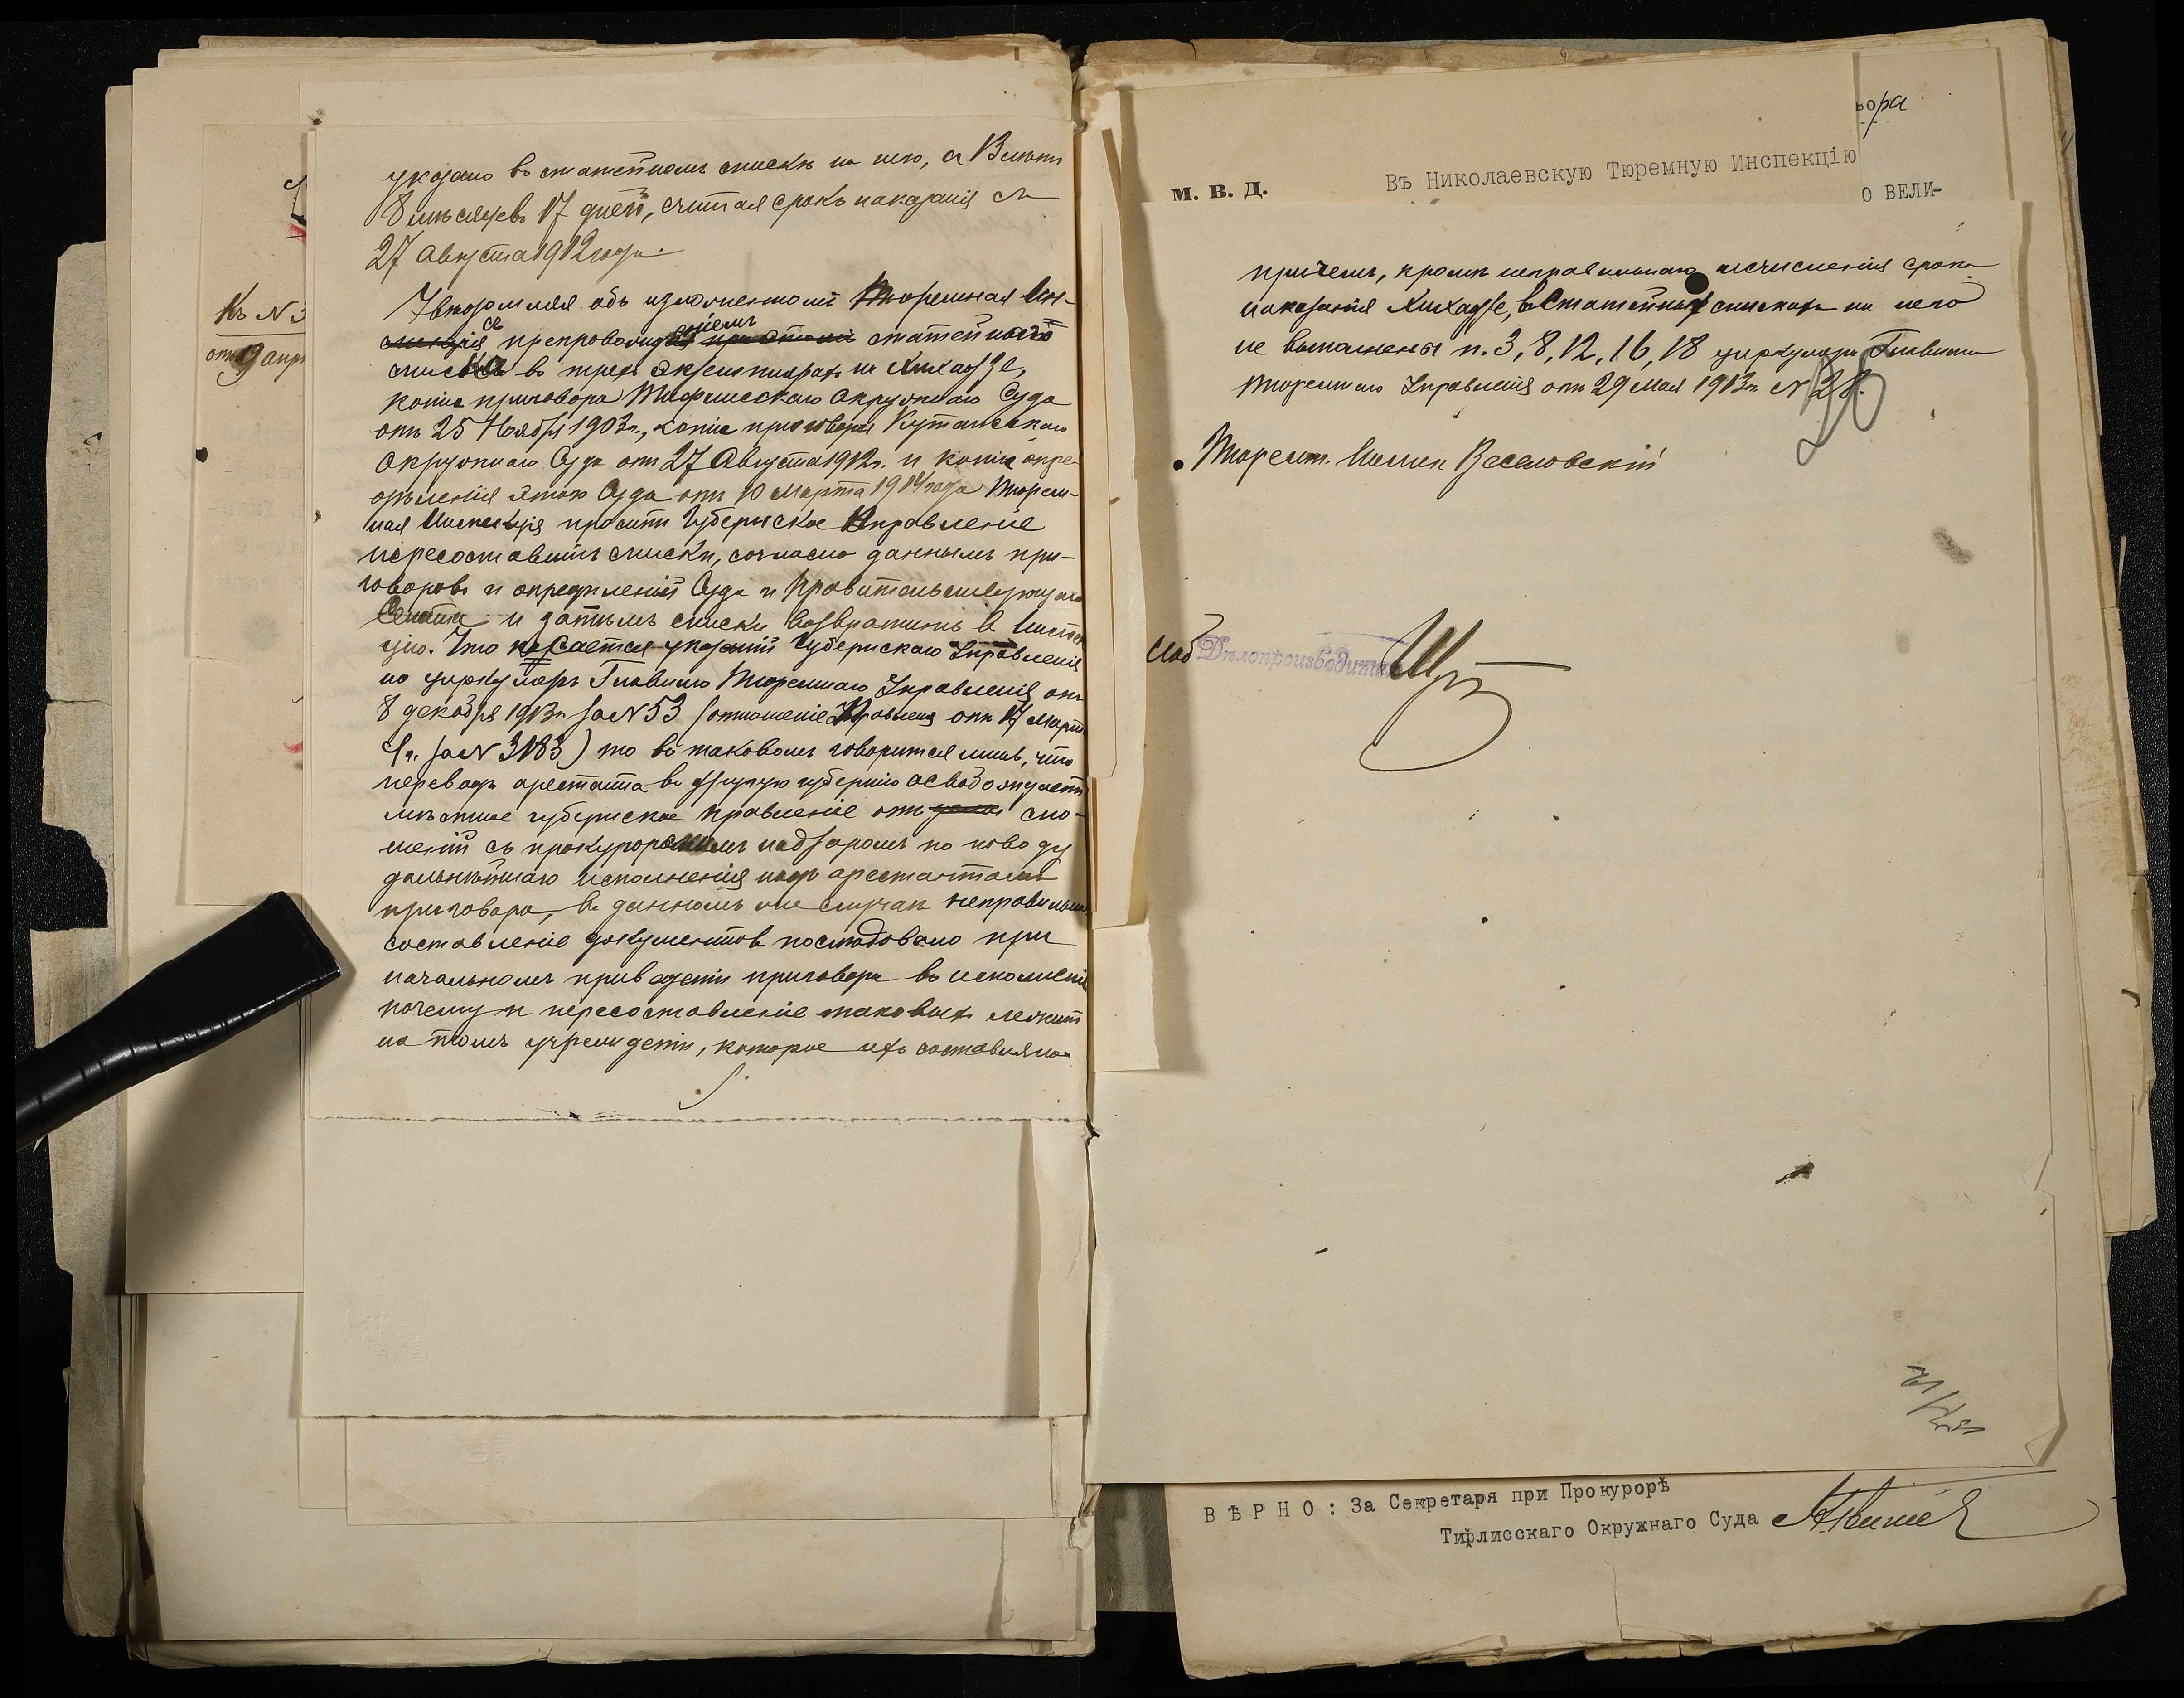 указано въ статейномъ спискѣ на него, а 13 лѣтъ
8 мѣсяцевъ 17 дней, считая срокъ наказанія съ
27 Августа 1912 года.
Увѣдомляя объ изложенномъ Тюремная Ин-
спекція съ препровожденіемъ при этомъ статейнаго
списка въ трехъ экземплярахъ на Хихадзе,
копіи приговора Тифлисскаго Окружнаго Суда
отъ 25 Ноября 1903 г., копіи приговора Кутаисскаго
Окружнаго Суда отъ 27 Августа 1912 г. и копіи опре-
дѣленія этого Суда отъ 10 Марта 1914 года Тюрем-
ная Инспекція проситъ Губернское Правленіе
пересоставить списки, согласно даннымъ при-
говоровъ и опредѣленій Суда и Правительствующаго
Сената и затѣмъ списки возвратить въ Инспек
цію. Что касается указаній Губернскаго Правленія
на циркуляръ Главнаго Тюремнаго Управленія отъ
8 декабря 1913 г. за № 53 (отношеніе Правленія отъ 17 Марта
с/г. за № 3183) то въ таковомъ говорится лишь, что
переводъ арестанта въ другую губернію освобождаетъ
мѣстное губернское правленіе отъ сно-
шеній съ прокурорскимъ надзоромъ по поводу
дальнѣйшаго исполненія надъ арестантомъ
приговора, въ данномъ же случаѣ неправильное
составленіе документовъ послѣдовало при
начальномъ приведеніи приговора въ исполненіе
почему и пересоставленіе таковыхъ лежитъ
на томъ учрежденіи, которое ихъ составляло
Къ № 3
отъ 9 апр
ора
М. В. Д.
Въ Николаевскую Тюремную Инспекцію
О ВЕЛИ-
причемъ, кромѣ неправильнаго исчисленія срока
наказанія Хихадзе, въ Статейныхъ спискахъ на него
не выполнены п. 3, 8, 12, 16, 18 циркуляра Главнаго
Тюремнаго Управленія отъ 29 Мая 1913 г. № 28.
Тюремн. Инспек Веселовскій
Дѣлопроизводитель
ВѢРНО: За Секретаря при Прокурорѣ
Тифлисскаго Окружнаго Суда